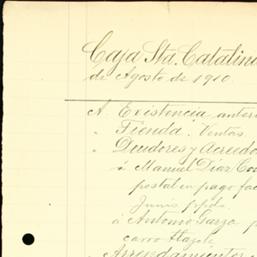 Caja Sta. Catalina
de Agosto de 1910
A Existencia anter
" Tienda. Ventas
" Deudores y Acreedo
á Manuel Diaz Con
postal en pago fac
Junio
á Antonio Garza p
carro
" Arrendamientos